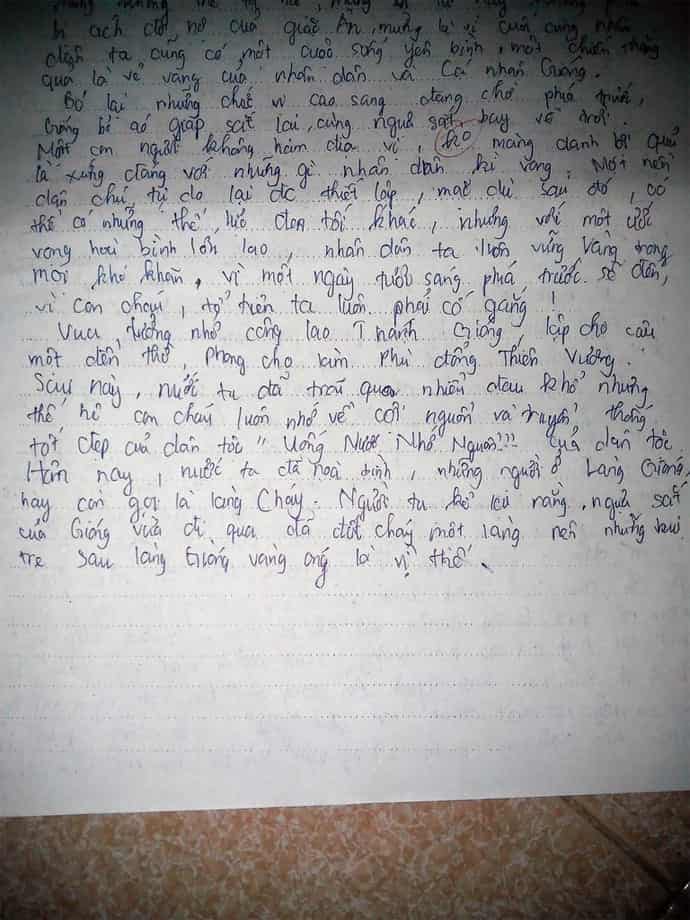 bị ách đô hộ của giặc Ân, mừng là vì cuối cùng nhân
dân ta cũng có một cuộc sống yên bình, một chiến thắng
quá là vẻ vang của nhân dân và Cá nhân Gióng.
Bỏ lại những chức vị cao sang đang chờ phía trước,
Gióng bỏ áo giáp sắt lại, cùng ngựa sắt bay về trời.
Một con người không ham địa vị, ko màng danh lợi quả
là xứng đáng với những gì nhân dân kì vọng. Một nền
dân chủ, tự do lại đc thiết lập, mặc dù sau đó, có
thể có những thế lực đen tối khác, nhưng với một ước
vọng hoà bình lớn lao, nhân dân ta luôn vững vàng trong
mọi khó khăn, vì một ngày tươi sáng phía trước sẽ đến,
vì con cháu, tổ tiên ta luôn phải cố gắng!
Vua tưởng nhớ công lao Thánh Gióng, lập cho cậu
một đền thờ, phong cho làm Phù Đổng Thiên Vương.
Sau này, nước ta đã trải qua nhiều đau khổ nhưng
thế hệ con cháu luôn nhớ về cội nguồn và truyền thống
tốt đẹp của dân tộc " Uống Nước Nhớ Nguồn!!! của dân tộc
Hôm nay, nước ta đã hoà bình, những người ở Làng Gióng,
hay còn gọi là làng Cháy. Người ta kể lại rằng, ngựa sắt
của Gióng vừa đi qua đã đốt cháy một làng nên những bụi
tre sau làng Gióng vàng óng là vì thế.